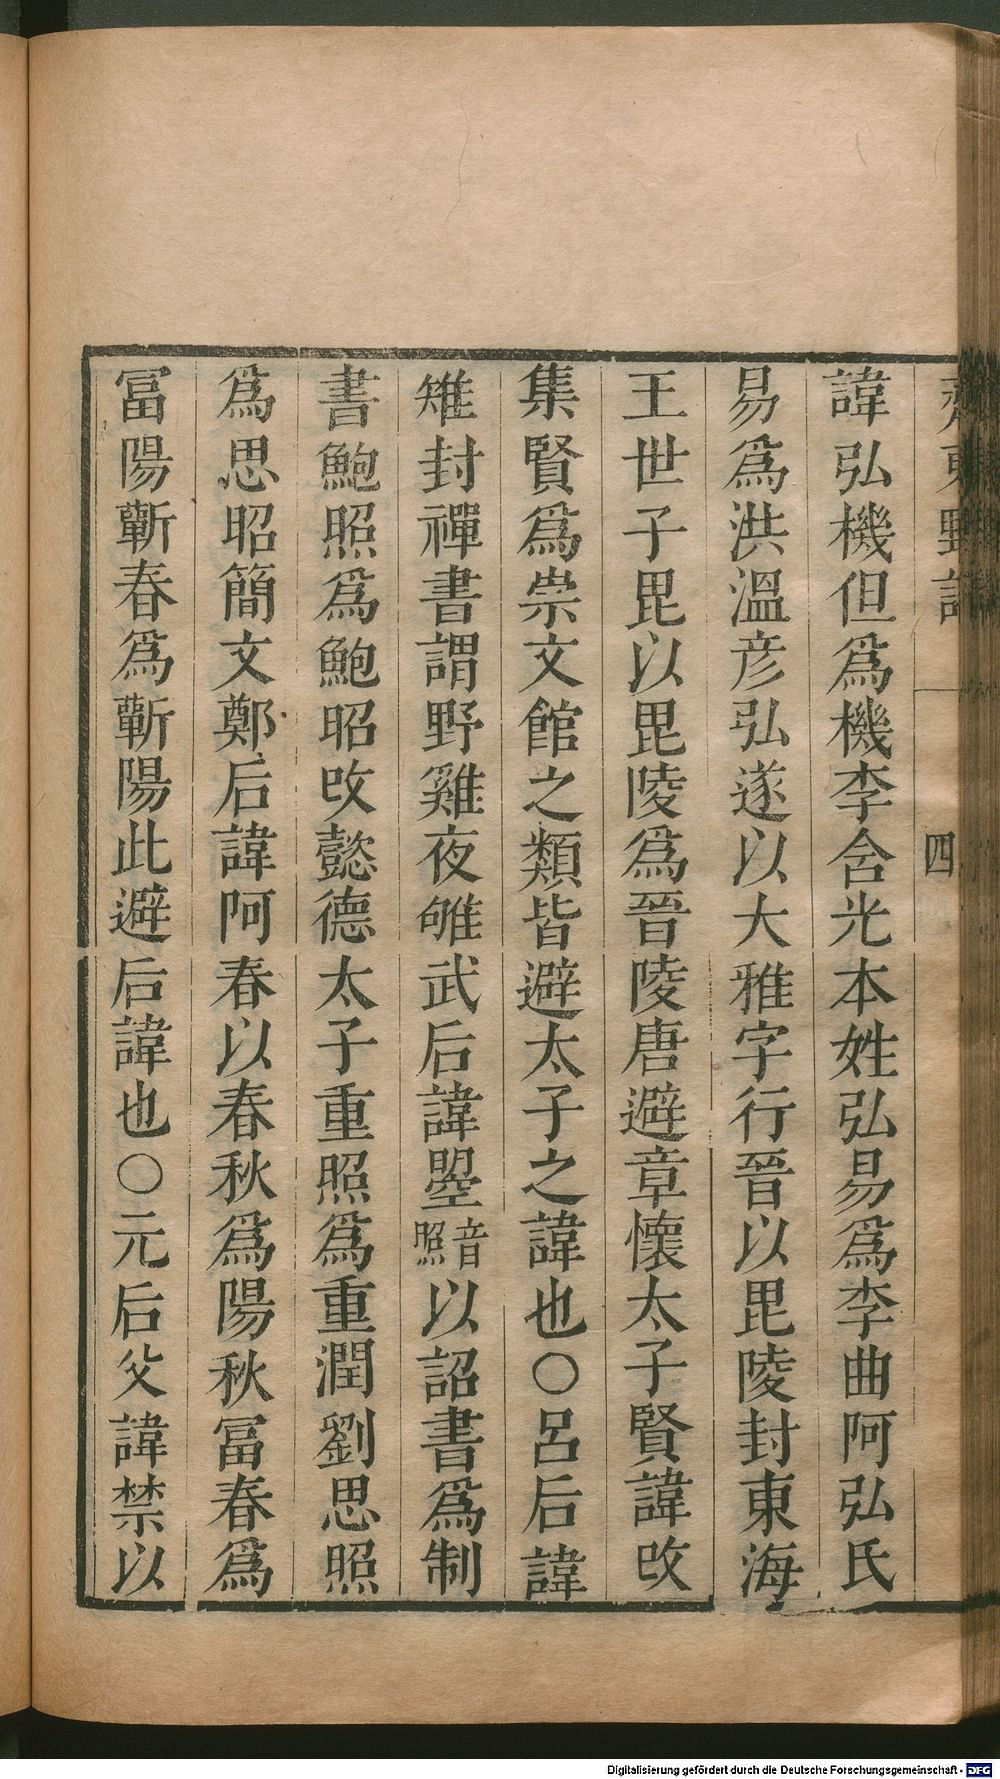 齊東野語
四
諱弘機但為機李含光本姓弘易為李曲阿弘氏
易為洪溫彦弘遂以大雅字行晉以毘陵封東海
王世子毘以毘陵為晉陵唐避章懷太子賢諱改
集賢為崇文館之類皆避太子之諱也○呂后諱
雉封禪書謂野雞夜雊武后諱曌音照以詔書為制
書鮑照為鮑昭改懿德太子重照為重潤劉思照
為思昭簡文鄭后諱阿春以春秋為陽秋冨春為
冨陽蘄春為蘄陽此避后諱也○元后父諱禁以
Digitalisierung gefördert durch die Deutsche Forschungsgemeinschaft - DFG